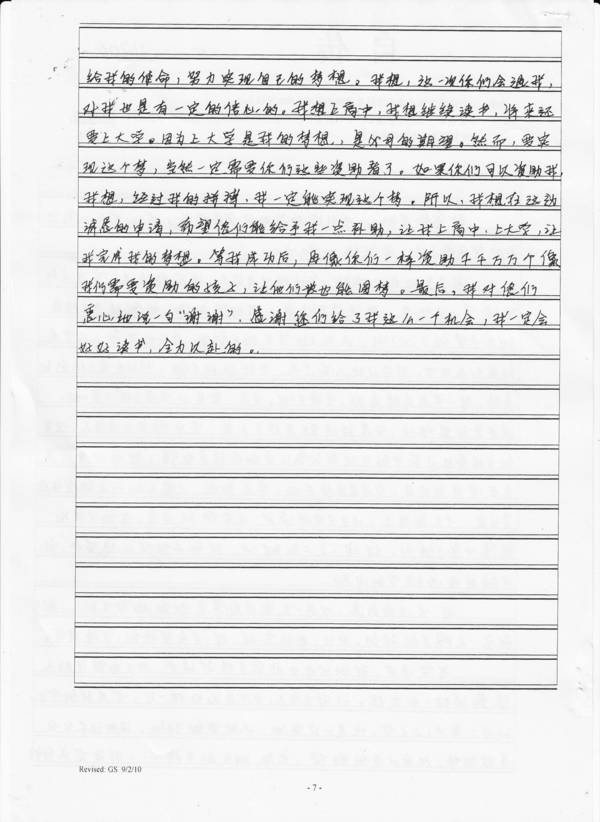 给我的使命，努力实现自己的梦想。我想，这一次你们会选我，
对我也是有一定的信心的。我想上高中，我想继续读书，将来还
要上大学。因为上大学是我的梦想，是父母的期望。然而，要实
现这个梦，当然一定需要你们这些资助者了。如果你们可以资助我，
我想，经过我的拼搏，我一定能实现这个梦。所以，我想在这动
诚恳的申请，希望您们能给予我一点补助，让我上高中、上大学，让
我完成我的梦想。等我成功后，再像你们一样资助千千万万个像
我们需要资助的孩子，让他们也能圆梦。最后，我对您们
衷心地说一句“谢谢”，感谢您们给了我这么一个机会，我一定会
好好读书，全力以赴的。
Revised: GS 9/2/10
- 7 -